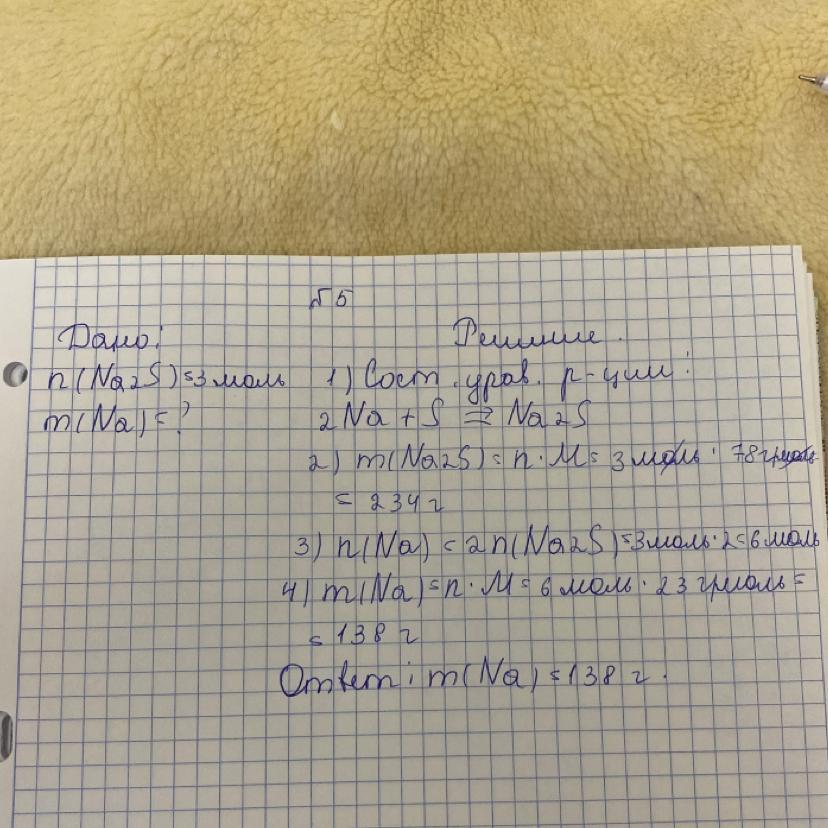 №5
Дано:
Решение.
n(Na2S)=3 моль
m(Na)=?
1) Сост. урав. р-ции:
2Na + S = Na2S
2) m(Na2S) = n · M = 3 моль · 78 г/моль
= 234 г
3) n(Na) = 2n(Na2S)=3моль·2=6 моль
4) m(Na)=n·M= 6 моль · 23 г/моль =
= 138 г
Ответ: m(Na)=138 г.